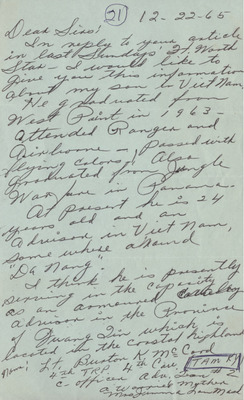 (21) 12-22-65
Dear Sirs!
In reply to your article
in last Sundays' Ft Worth
Star - I would like to
give you this information
about my son in Viet Nam,
He graduated from
West Point in 1963 -
Attended Ranger and
Airborne - Passed with
flying colors! Also
graduated from Jungle
Warfare in Panama.
At present he is 24
years old and an
Advisor in Viet Nam,
some where around
"Da Nang"
I think he is presently
serving in the capacity
as an armoured cavalry
advisor in the Province
of Quang Tin which is
located in the coastal highland
Lt. Burton K. McCord
4th Cav. TAM KY
officer Adv. Team # 2
A Worried Mother